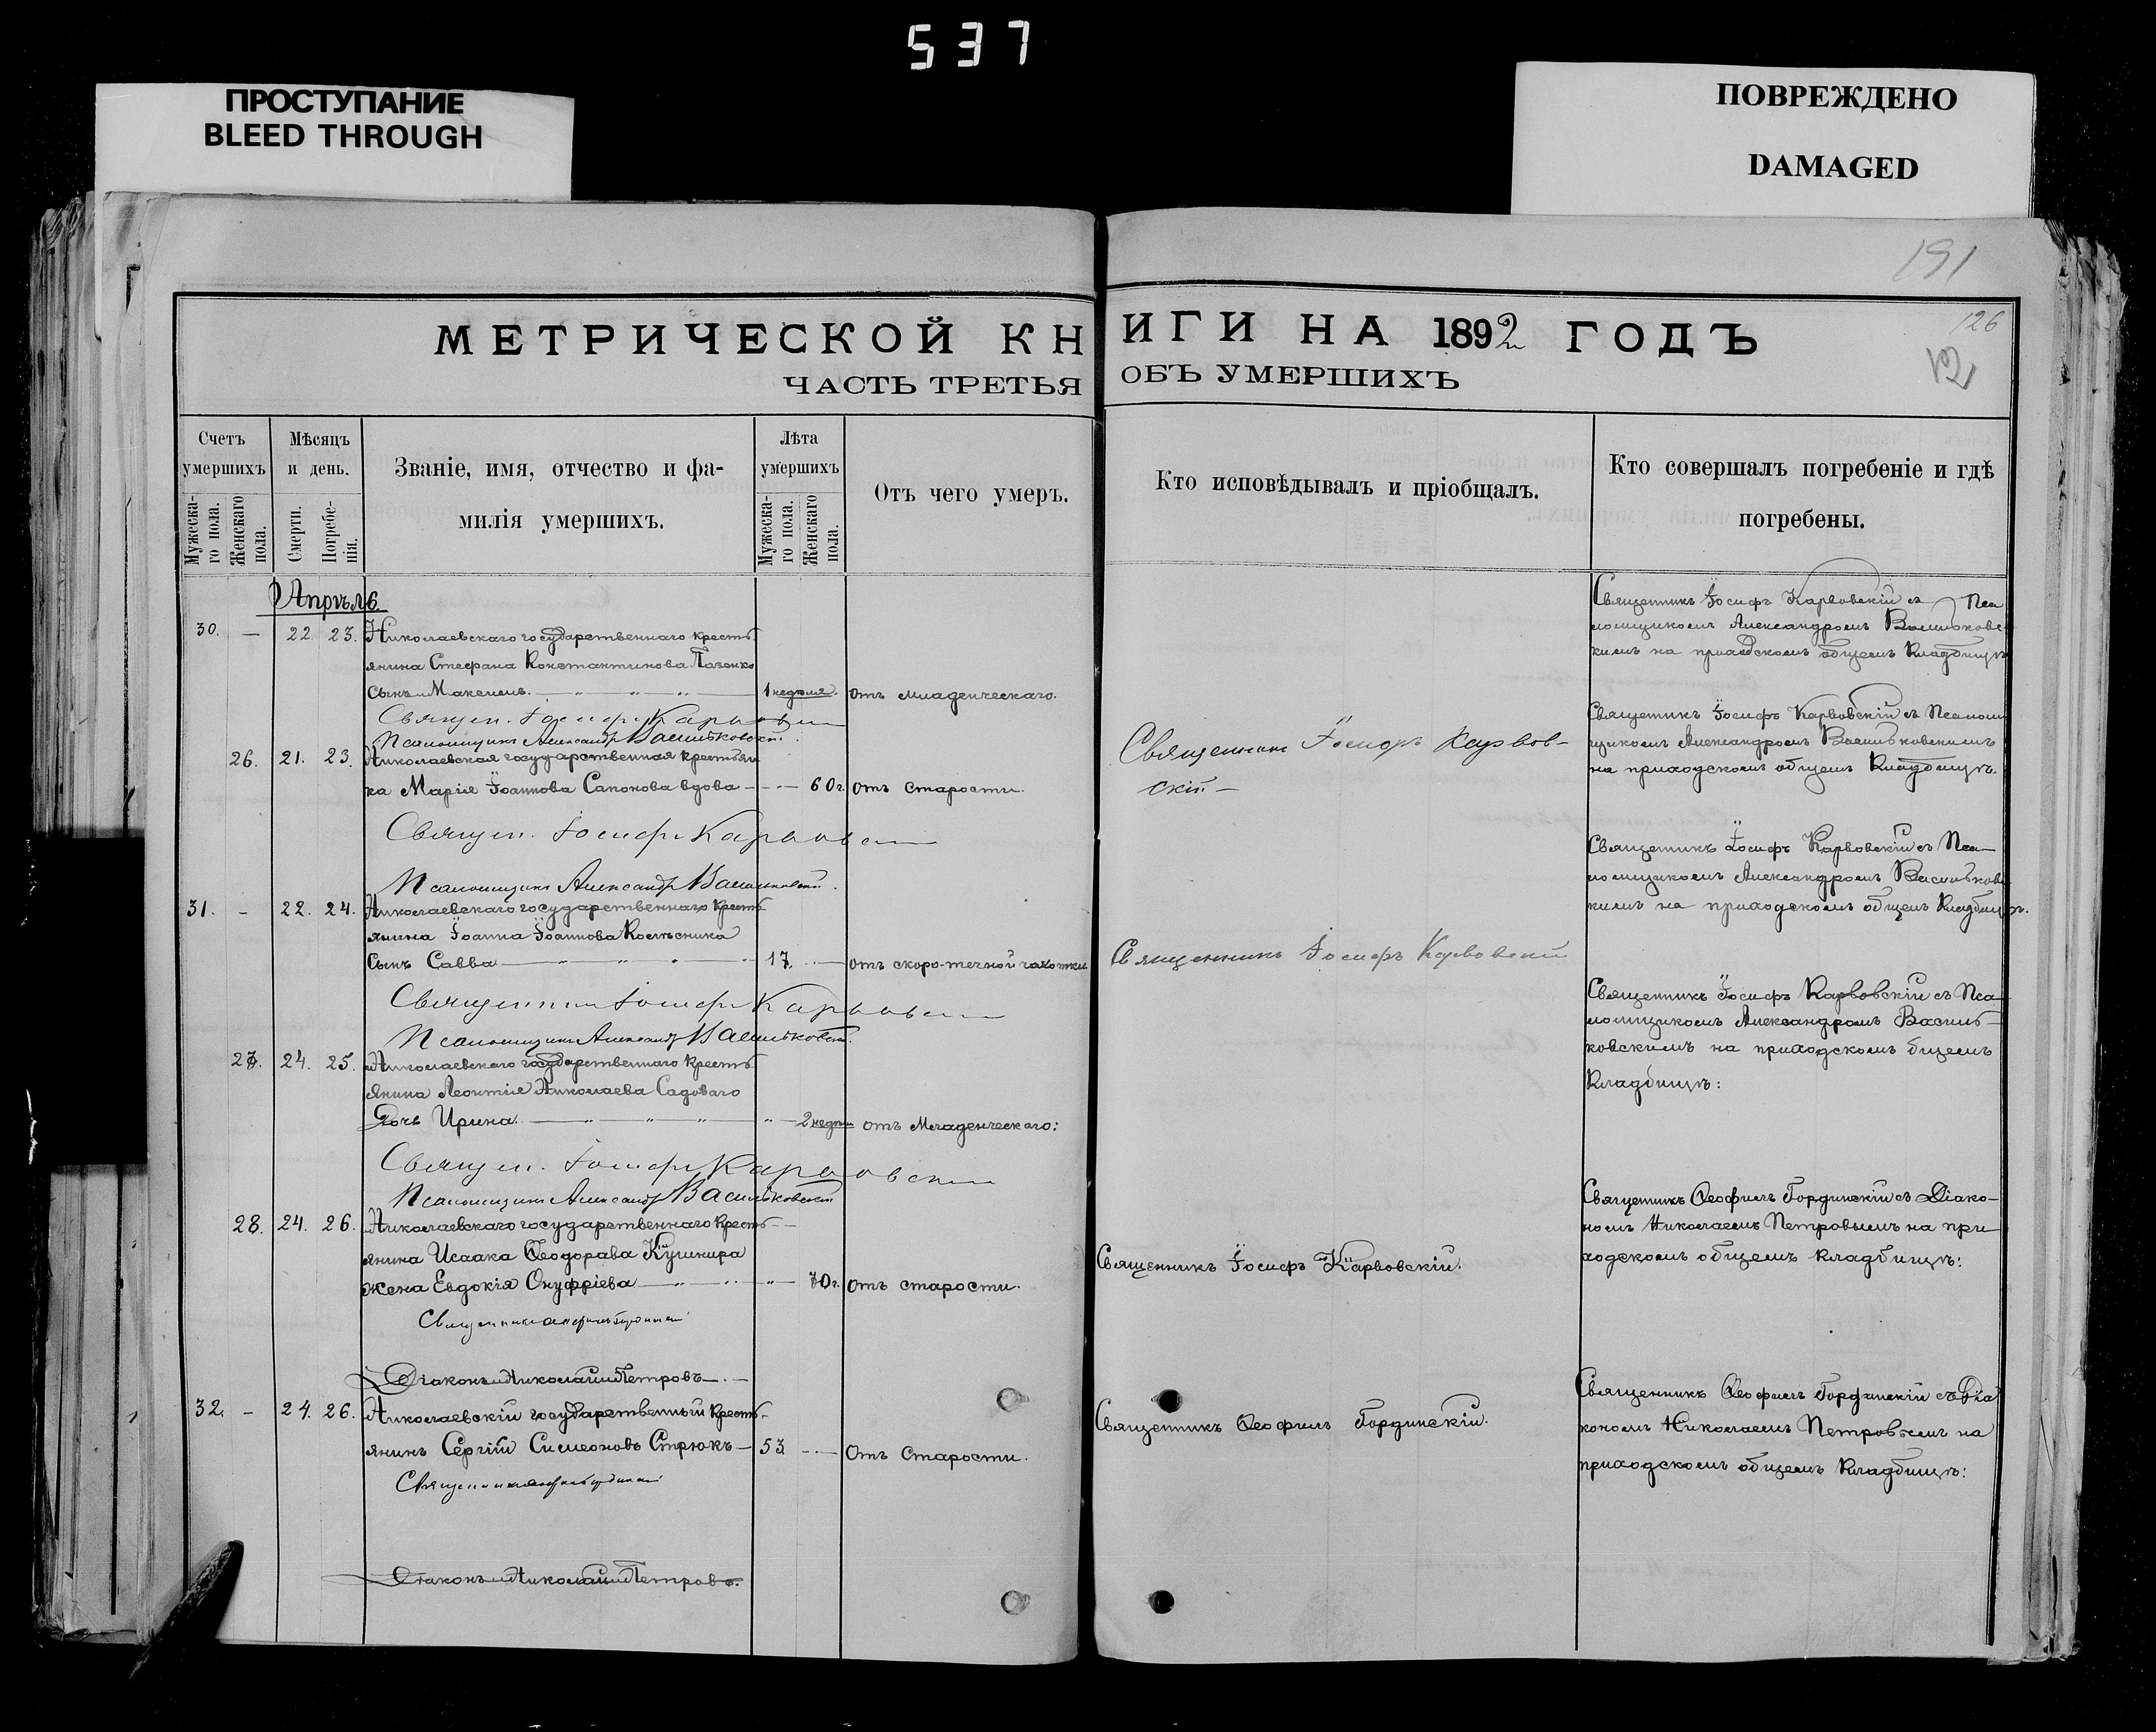 537
ПРОСТУПАНИЕ
BLEED THROUGH
ПОВРЕЖДЕНО
DAMAGED
191
126
МЕТРИЧЕСКОЙ КНИГИ НА 1892 ГОДЪ
ЧАСТЬ ТРЕТЬЯ ОБЪ УМЕРШИХЪ
Счетъ умершихъ
Мужеска-го пола.
Женскаго пола.
Мѣсяцъ и день.
Смерти.
Погребе-нія.
Званіе, имя, отчество и фа-
милія умершихъ.
Лѣта умершихъ
Мужеска-го пола.
Женскаго пола.
Отъ чего умеръ.
Кто исповѣдывалъ и пріобщалъ.
Кто совершалъ погребеніе и гдѣ
погребены.
Апрѣль
30. — 22. 23. Николаевскаго государственнаго кресть
янина Стефана Константинова
сынъ 1 неделя. отъ младенческаго.
Священ. Іосифъ Карвовскій
Псаломщикъ Александръ Васильковскій.
Священникъ Іосифъ Карвовскій съ Пса
ломщикомъ Александромъ Васильковс-
кимъ на приходскомъ общемъ кладбищѣ
26. 21. 23. Николаевская государственная крестьян
ка Марія Іоаннова Сапонова вдова — 60 г. отъ старости.
Священ. Іосифъ Карвовскій
Псаломщикъ Александръ Васильковскій.
Священникъ Іосифъ Карвов-
скій —
Священникъ Іосифъ Карвовскій съ Псалом
щикомъ Александромъ Васильковскимъ
на приходскомъ общемъ кладбищѣ.
31. — 22. 24. Николаевскаго государственнаго кресть
янина Іоанна Іоаннова Колѣсника
сынъ Савва — 17. — отъ скоро-течной чахотки
Священникъ Іосифъ Карвовскій
Псаломщикъ Александръ Васильковскій.
Священникъ Іосифъ Карвовскій
Священникъ Іосифъ Карвовскій съ Пса—
ломщикомъ Александромъ Васильковс
кимъ на приходскомъ общемъ кладбищѣ.
27. 24. 25. Николаевскаго государственнаго кресть
янина Леонтія Николаева Садоваго
дочь Ирина. — 2 недѣли отъ Младенческаго:
Священ. Іосифъ Карвовскій
Псаломщикъ Александръ Васильковскій
Священникъ Іосифъ Карвовскій съ Пса
ломщикомъ Александромъ Василь—
ковскимъ на приходскомъ бщемъ
Кладбищѣ:
28. 24. 26. Николаевскаго государственнаго кресть
янина Исаака Ѳеодорава Кушнира
жена Евдокія Онуфріева — 70 г. отъ старости.
Священникъ
Діаконъ Николай Петровъ. —
Священникъ Іосифъ Карвовскій.
Священникъ Ѳеофилъ Гординскій съ Діако-
номъ Николаемъ Петровымъ на при
ходскомъ общемъ кладбищѣ:
32. — 24. 26. Николаевскій государственный кресть-
янинъ Сергій Симеоновъ Стрюкъ — 53 — Отъ Старости.
Священникъ
Діаконъ Николай Петровъ.
Священникъ Ѳеофилъ Гординскій.
Священникъ Ѳеофилъ Гординскій съ Діа
кономъ Николаемъ Петровымъ на
приходскомъ общемъ кладбищѣ: